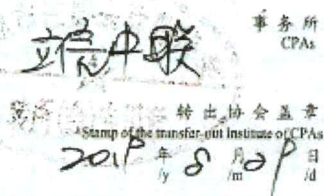 事务所
CPAs
立信中联
转出协会盖章
Stamp of the transfer-out Institute of CPAs
2019 年 8 月 29 日
/y /m /d